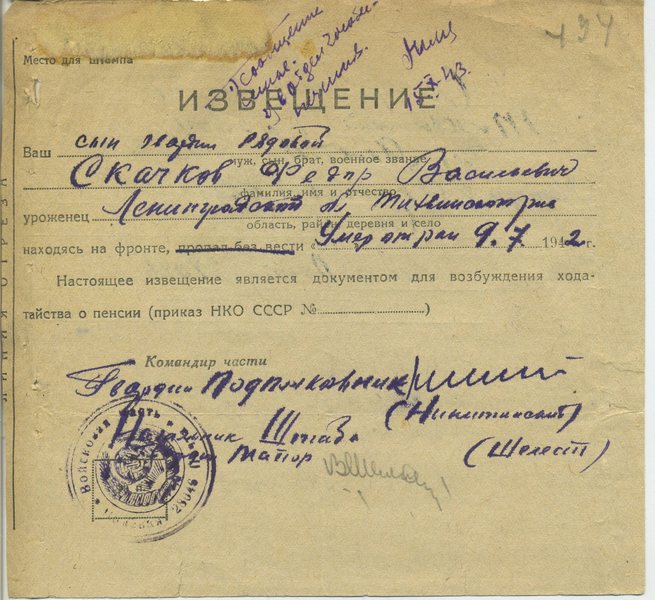 434
Место для штампа
15/IX 43.
ИЗВЕЩЕНИЕ
Ваш сын гвардии рядовой
муж, сын, брат, военное звание
Скачков Федор Васильевич
фамилия, имя и отчество
уроженец Ленинградской
область, район, деревня и село
находясь на фронте, пропал без вести с Умер от ран 9.7. 1942 г.
Настоящее извещение является документом для возбуждения хода-
тайства о пенсии (приказ НКО СССР № )
Командир части
Гвардии Подполковник
Начальник Штаба
Майор (Шелест)
Войсковая часть
ЛИНИЯ ОТРЕЗА